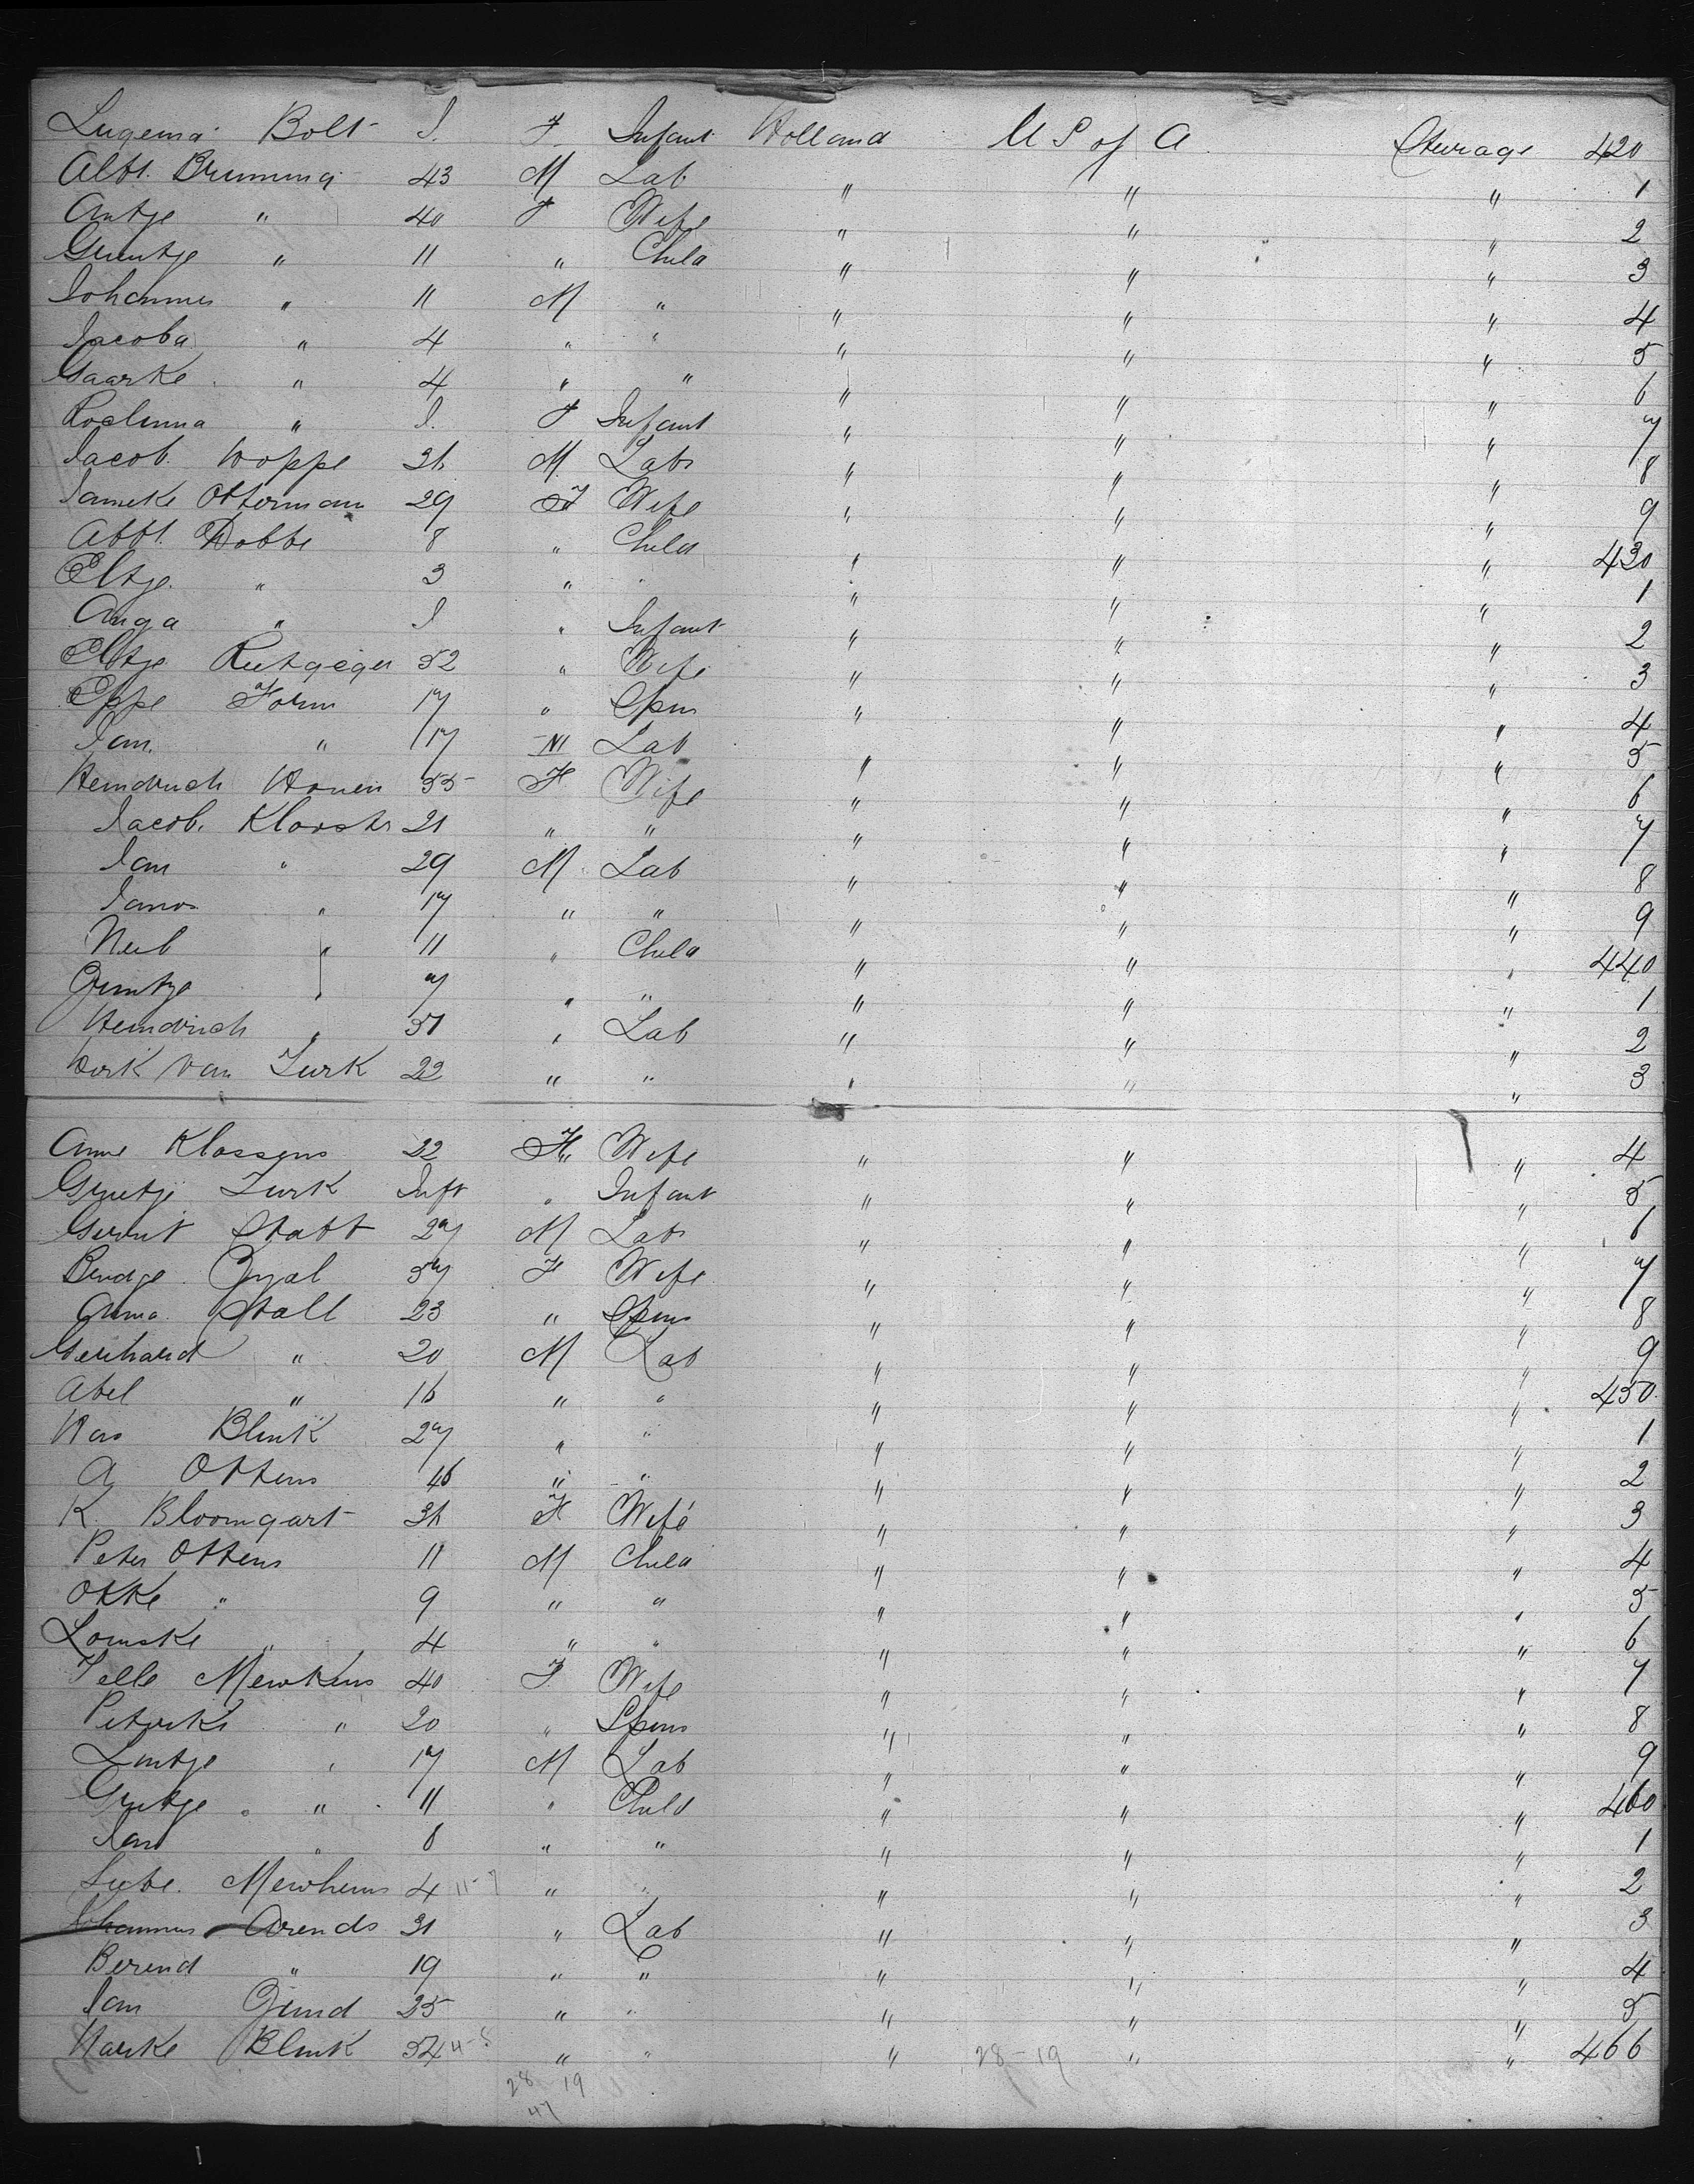 Bolt I. F. Infant Holland U S of A Sterage 420
Albt. Brunning 43 M Lab " " " 1
Antje " 40 F Wife " " " 2
Geentje " 11 " Child " " " 3
Johannes " 11 M " " " " 4
Jacoba " 4 " " " " " 5
Gaarke " 4 " " " " " 6
" I. F Infant " " " 7
Jacob. Hoppe 36 M Lab " " " 8
Janneke Otterman 29 F Wife " " " 9
Abbt. Dobbe 8 " Child " " " 430
Eltje. " 3 " " " " " 1
Anga " I " Infant " " " 2
Eltje 52 " Wife " " " 3
Eppe Form 17 " Spin " " " 4
Jan. " 17 M Lab " " " 5
Heindrich 55 F Wife " " " 6
Jacob. Klooster 21 " " " " " 7
Jan " 29 M Lab " " " 8
" 17 " " " " " 9
" 11 " Child " " " 440
" 7 " " " " " 1
Heindrich " 51 " Lab " " " 2
Dirk Van Turk 22 " " " " " 3
Anne Klassens 22 F Wife " " " 4
Grietje Turk Inft " Infant " " " 5
Gerrit Statt 27 M Lab " " " 6
57 F Wife " " " 7
Anna. Stall 23 " Spins " " " 8
Gerhard " 20 M Lab " " " 9
Abel " 16 " " " " " 450
Blink 27 " " " " " 1
A Ottens 46 " " " " " 2
K. Bloomgart 36 F Wife " " " 3
Peter Ottens 11 M Child " " " 4
Okke " 9 " " " " " 5
Lomske " 4 " " " " " 6
Jelle Mewkens 40 F Wife " " " 7
" 20 " Spins " " " 8
" 17 M Lab " " " 9
Grietje " 11 " Child " " " 460
Jan " 8 " " " " " 1
Mewhens 4 11-7 " " " " " 2
Johannes Arends 31 " Lab " " " 3
Berend " 19 " " " " " 4
Jan 25 " " " " " 5
Harke Blink 54 " " " 28-19 " " 466
28 19
47